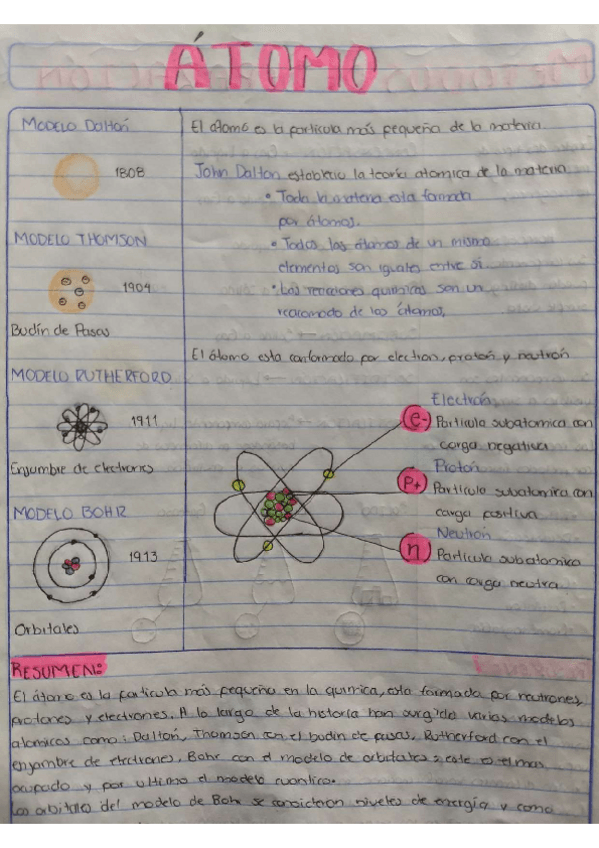 ÁTOMO
MODELO Daltón
1808
MODELO THOMSON
1904
Budín de Pasas
MODELO RUTHERFORD
1911
Enjambre de electrones
MODELO BOHR
1913
Orbitales
El átomo es la partícula más pequeña de la materia
John Dalton establecio la teoría atomica de la materia
• Toda la materia esta formada
por átomos.
• Todos los átomos de un mismo
elementos son iguales entre si.
• Las reacciones quimicas son un
reacomodo de los átomos,
El átomo esta conformado por electron, protón y neutrón
Electrón
e- Particula subatomica con
carga negativa
Protón
P+ Particula subatomica con
carga positiva
Neutrón
n Particula subatomica
con carga neutra
RESUMEN:
El átomo es la particula más pequeña en la quimica, esta formada por neutrones,
protones y electrones. A lo largo de la historia han surgido varios modelos
atomicos como: Daltón, Thomson con el budin de pasas, Rutherford con el
enjambre de electrones, Bohr con el modelo de orbitales, este es el mas
ocupado y por ultimo el modelo cuantico.
Los orbitales del modelo de Bohr se conocieron niveles de energía y como